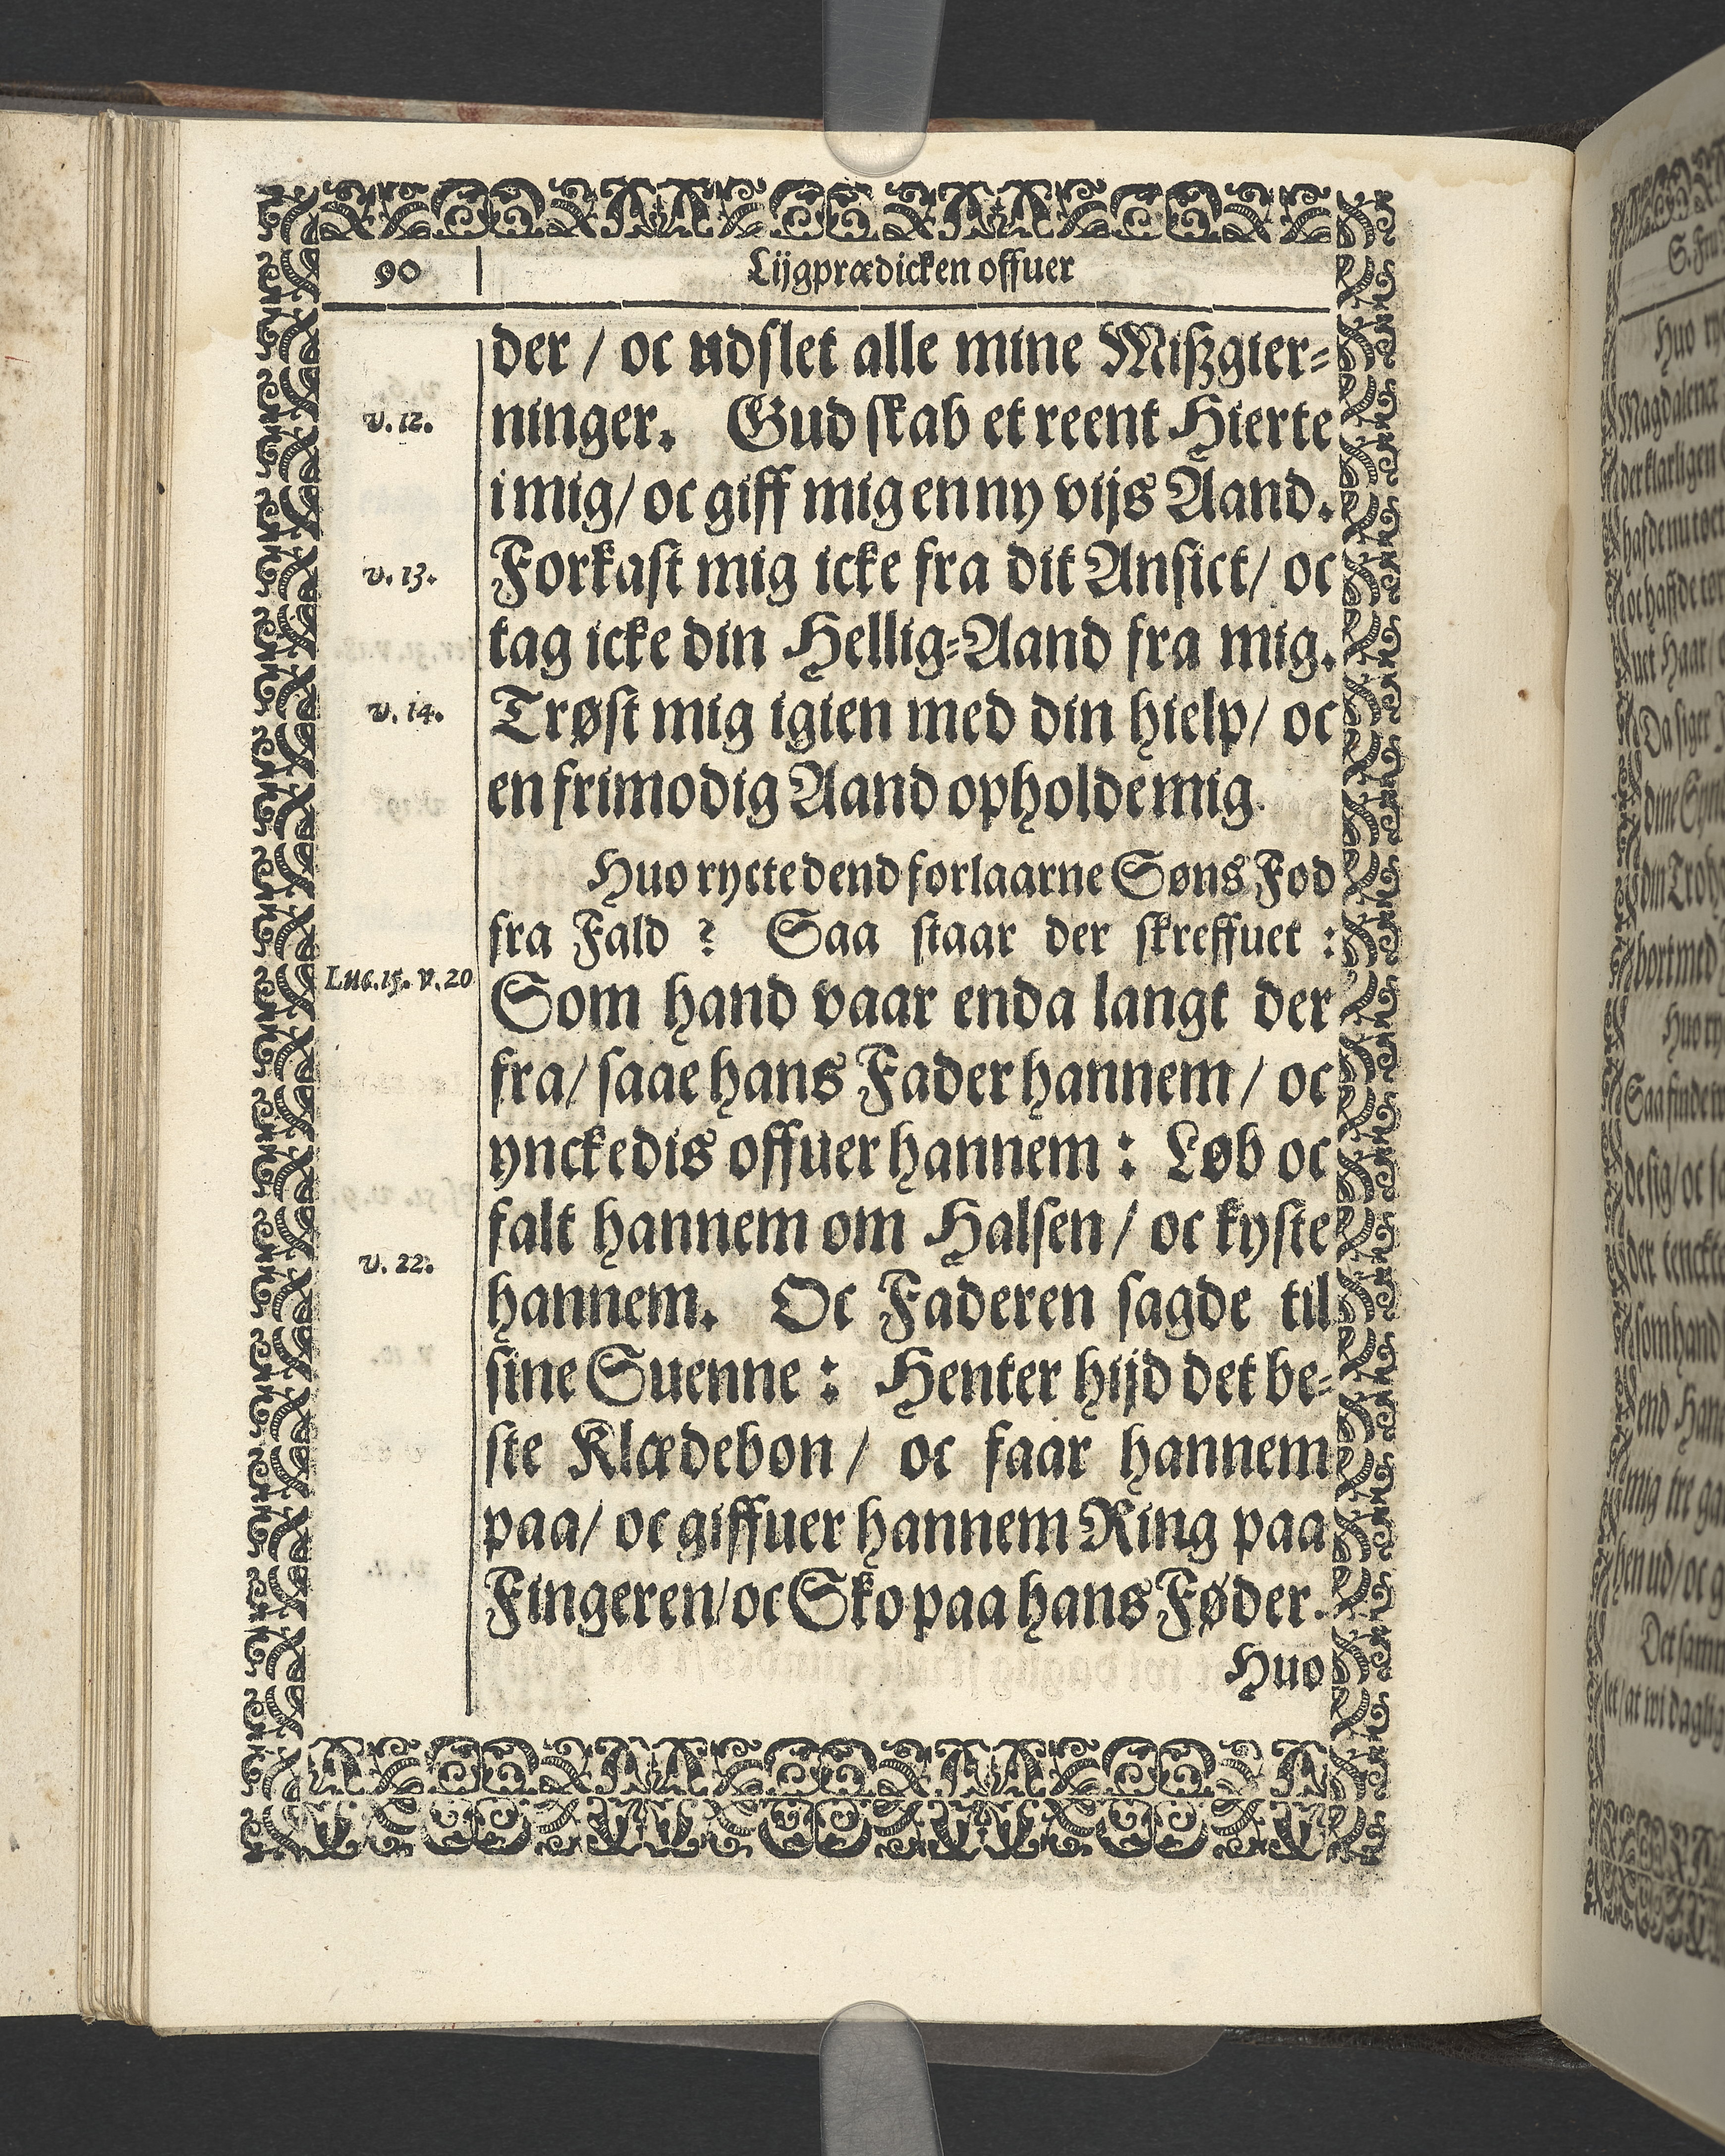 90
Lijgprædicken offuer
der / oc udslet alle mine Mißgier-
v. 12.
ninger. Gud skab et reent Hierte
i mig/ oc giff mig en ny vijs Aand.
v. 13.
Forkast mig icke fra dit Ansict/ oc
tag icke din Hellig-Aand fra mig.
v. 14.
Trøst mig igien med din hielp/ oc
en frimodig Aand opholde mig.
Huo ryctedend forlaarne Søns Fod
fra Fald ? Saa staar der skreffuet :
Luc. 15. v. 20
Som hand vaar enda langt der
fra/ saae hans Fader hannem / oc
ynckedis offuer hannem : Løb oc
falt hannem om Halsen / oc kyste
v. 22.
hannem. Oc Faderen sagde til
sine Suenne : Henter hijd det be-
ste Klædebon / oc faar hannem
paa/ oc giffuer hannem Ring paa
Fingeren/ oc Sko paa hans Føder.
Huo
S. Fru
Huo
Magdalenæ
Da siger
Huo
Saa finde
som hand
end
mig tre
Det samm